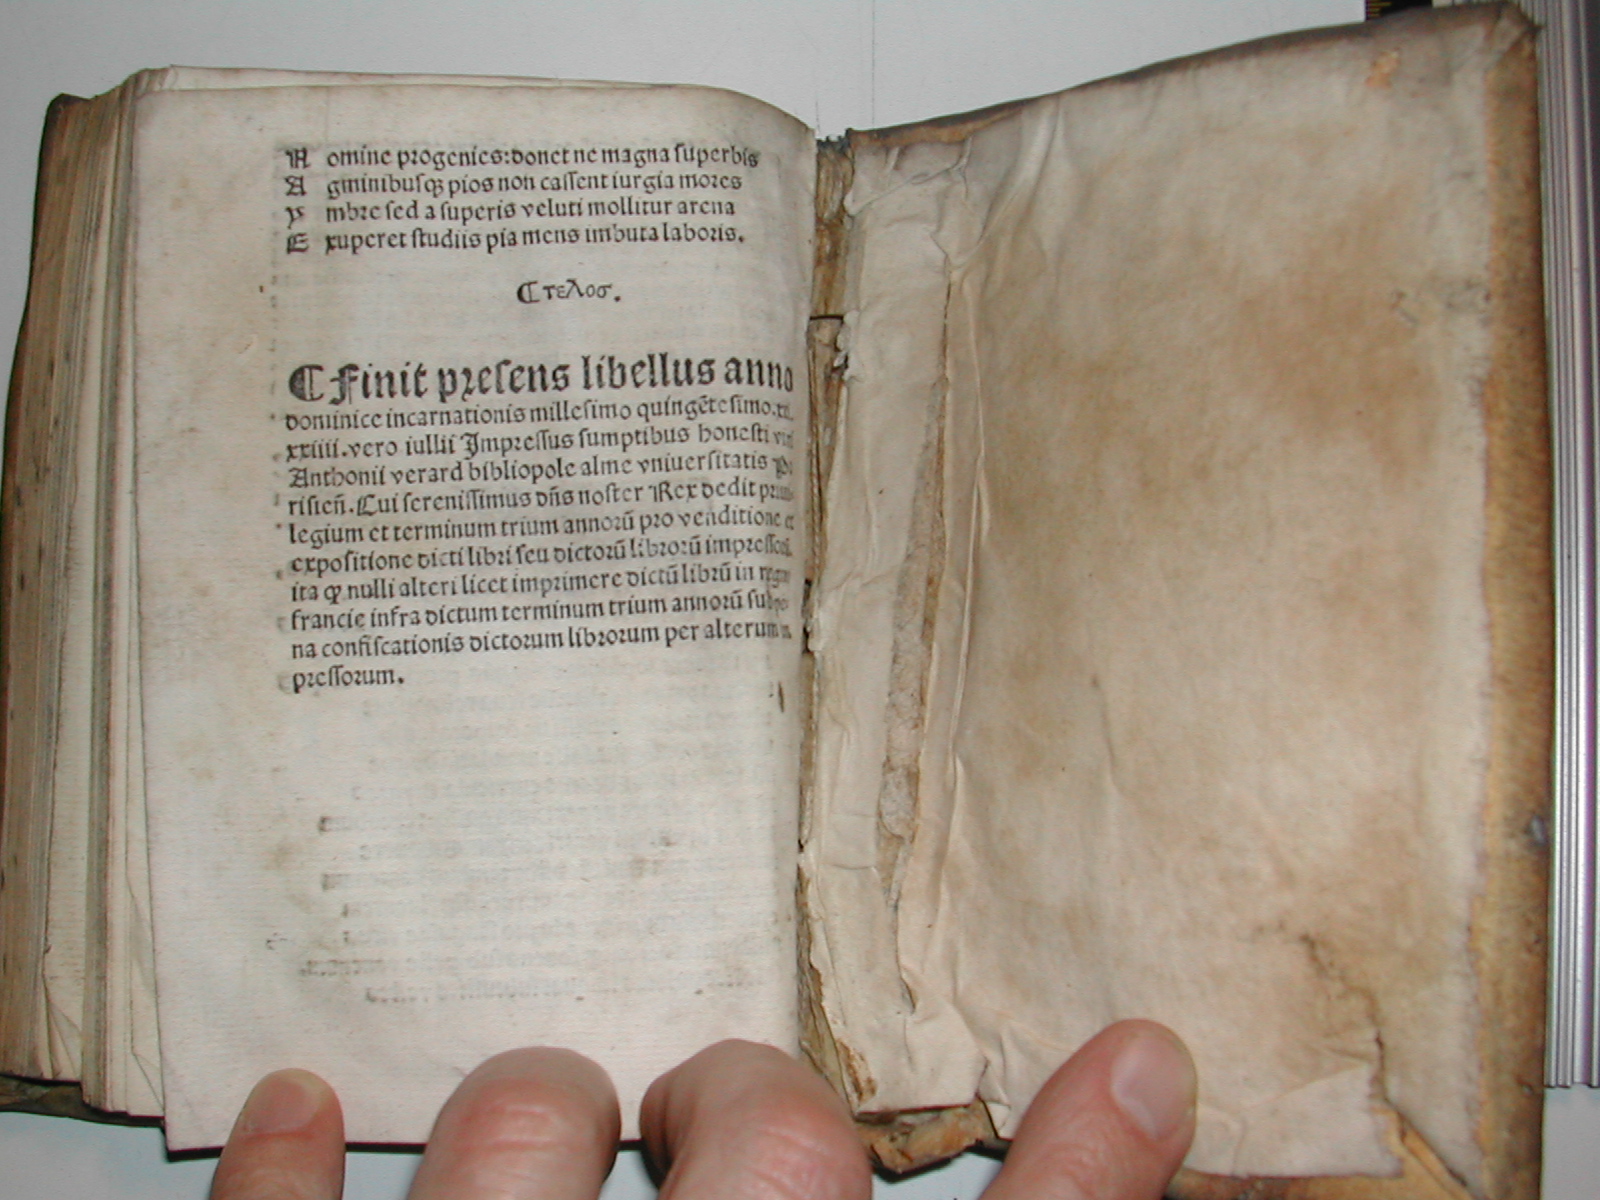 N omine progenies: donet ne magna ſuperbis
A gminibuſqꝫ pios non caſſent iurgia mores
Y mbre ſed a ſuperis veluti mollitur arena
E xuperet ſtudiis pia mens imbuta laboris.
⸿ τελοσ.
⸿ Finit preſens libellus anno
dominice incarnationis milleſimo quingẽteſimo.
xxiiii. vero iullii Impreſſus ſumptibus honeſti
Anthonii verard bibliopole alme vniuerſitatis Pa
riſieñ. Cui ſereniſſimus dñs noſter Rex dedit priui
legium et terminum trium annorũ pro venditione et
expoſitione dicti libri ſeu dictorũ librorũ impreſſorũ.
ita ꝙ nulli alteri licet imprimere dictũ librũ in regno
francie infra dictum terminum trium annorũ ſub pe
na confiſcationis dictorum librorum per alterum im
preſſorum.